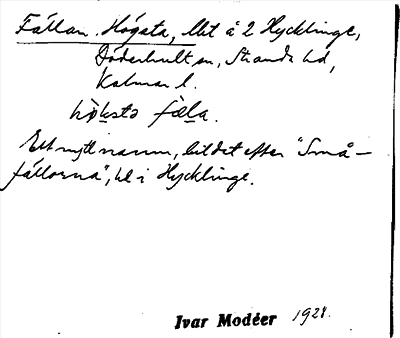 Fällan. Högsta, llt å 2 Hycklinge,
Döderhult sn, Stranda hd,
Kalmar l.
hö̱ksta fäl̠a.
Ett nytt namn, bildat efter "Små-
fällorna", hl i Hycklinge.
Ivar Modéer 1928.